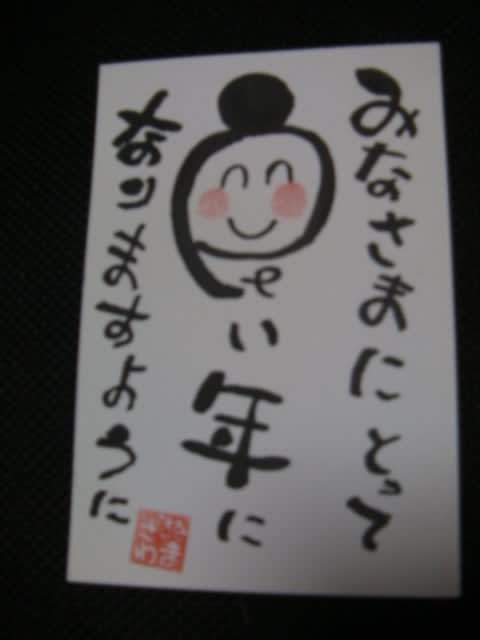 みなさまにとって
良い年に
なりますように